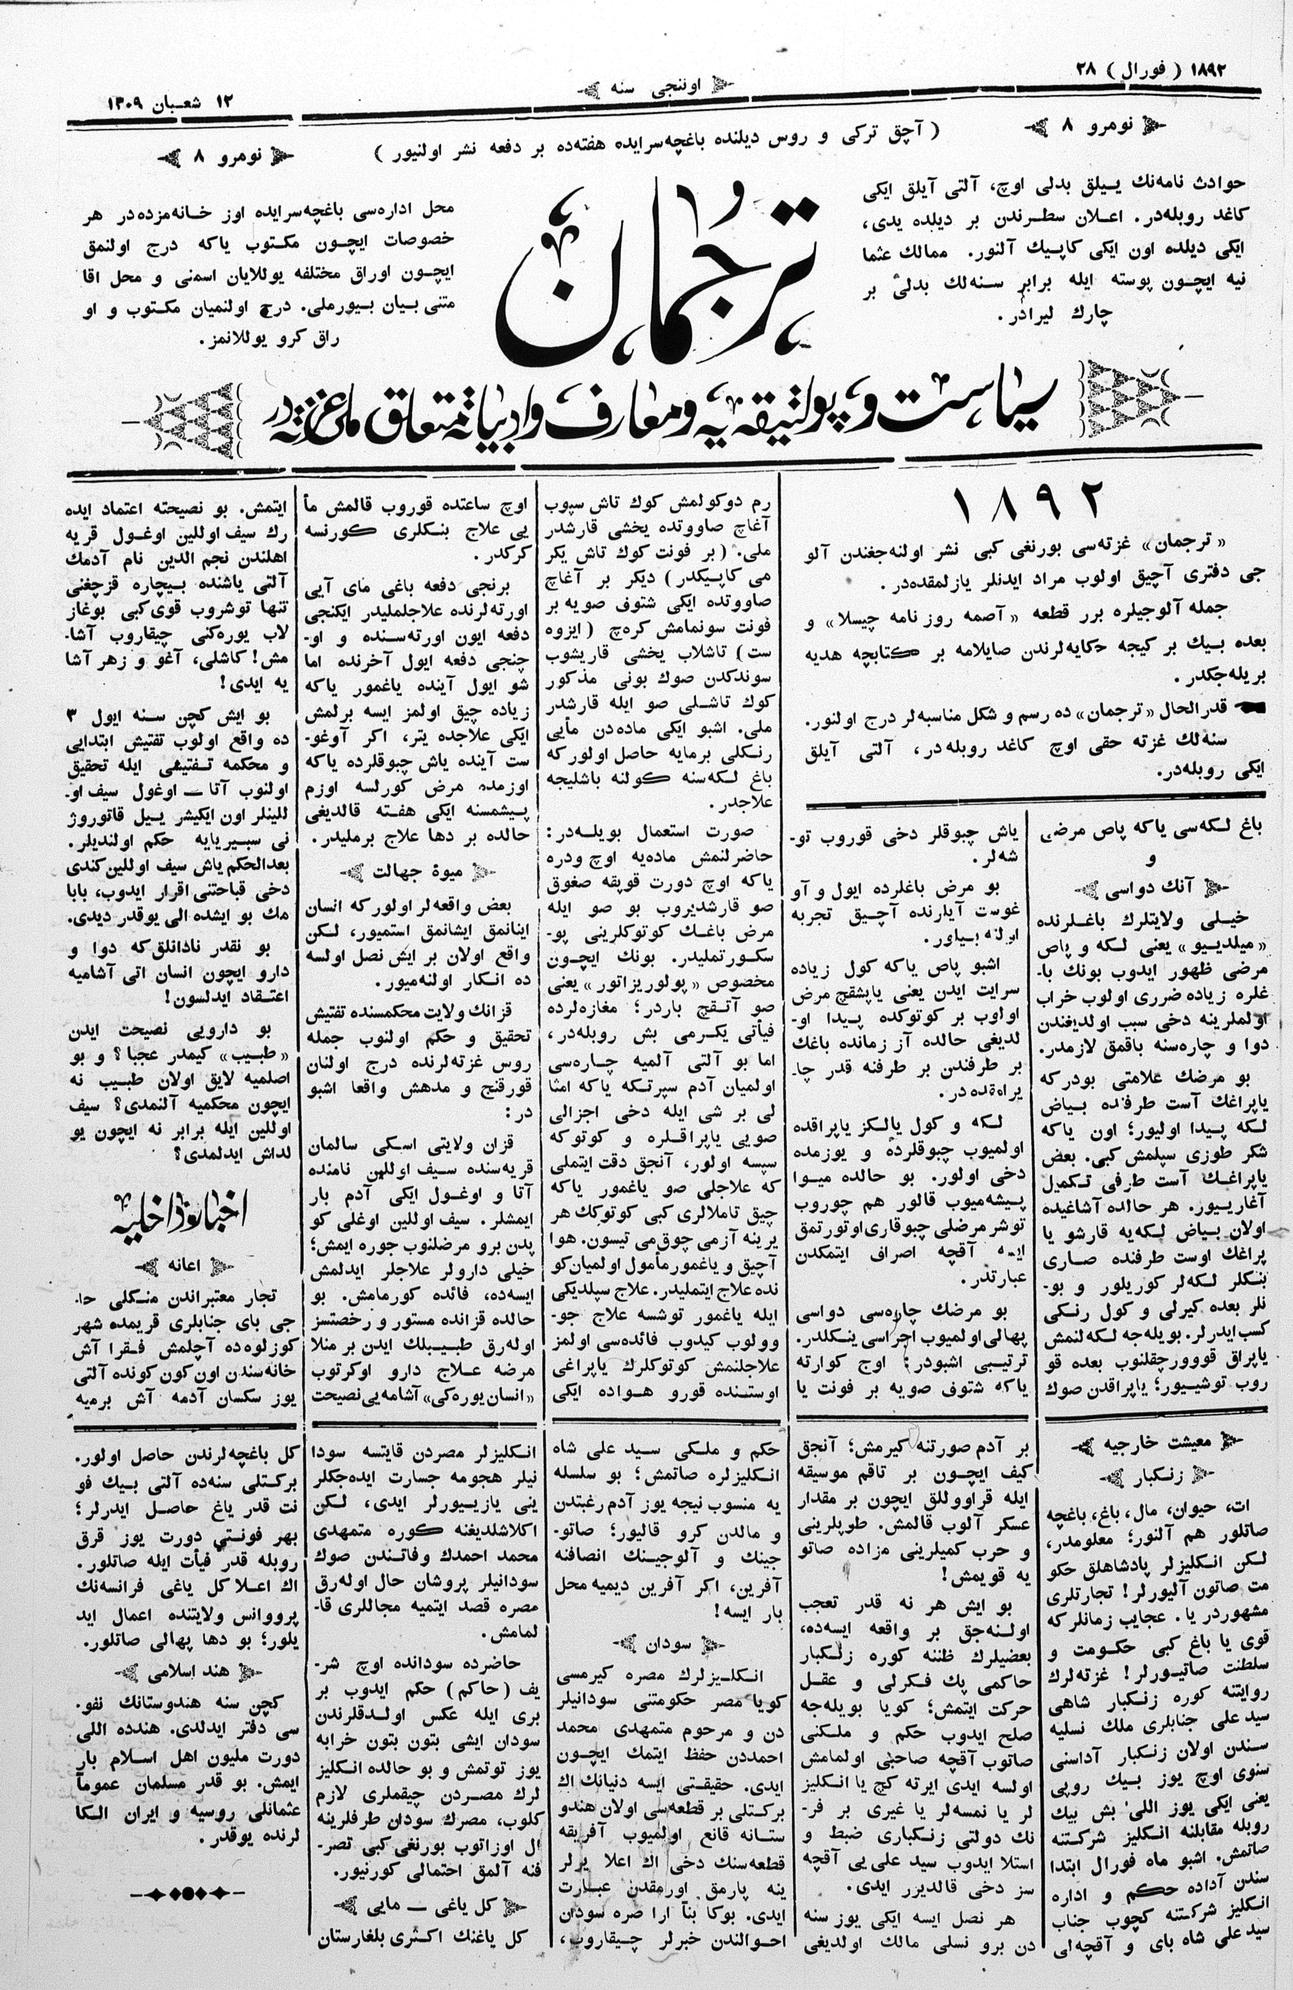 ١٨٩٢ ( فورال ) ٢٨
اوننجی سنه
١٢ شعبان ١٣٠٩
نومرو ٨
( آچق ترکی و روس دیلنده باغچه‌سرایده هفته‌ده بر دفعه نشر اولنیور )
نومرو ٨
حوادث نامه‌نك ییلق بدلی اوچ، آلتی آیلق ایکی
کاغد روبله‌در. اعلان سطرندن بر دیلده یدی،
ایکی دیلده اون ایکی کاپیك آلنور. ممالك عثما
نیه ایچون پوسته ایله برابر سنه‌لك بدلی بر
چارك لیرادر.
ترجمان
محل اداره‌سی باغچه‌سرایده اوز خانه‌مزده‌در هر
خصوصات ایچون مکتوب یاکه درج اولنمق
ایچون اوراق مختلفه یوللایان اسمنی و محل اقا
متنی بیان بیورملی. درج اولنمیان مکتوب و او
راق کرو یوللانمز.
سیاست و پولتیقه‌یه و معارف و ادبیاته متعلق ملی غزته‌در
١٨٩٢
« ترجمان» غزته‌سی بورنغی کبی نشر اولنه‌جغندن آلو
جی دفتری آچیق اولوب مراد ایدنلر یازلمقده‌در.
جمله آلوجیلره برر قطعه «آصمه روز نامه چیسلا» و
بعده بیك بر کیجه حکایه‌لرندن صایلامه بر کتابچه هدیه
بریله‌جکدر.
قدرالحال «ترجمان» ده رسم و شکل مناسبه‌لر درج اولنور.
سنه‌لك غزته حقی اوچ کاغد روبله‌در، آلتی آیلق
ایکی روبله‌در.
باغ لکه‌سی یاکه پاص مرضی
و
آنك دواسی
خیلی ولایتلرك باغلرنده
«میلدییو» یعنی لکه و پاص
مرضی ظهور ایدوب بونك با-
غلره زیاده ضرری اولوب خراب
اولملرینه دخی سبب اولدیغندن
دوا و چاره‌سنه باقمق لازمدر.
بو مرضك علامتی بودر که
یاپراغك آست طرفنده بیاض
لکه پیدا اولیور؛ اون یاکه
شکر طوزی سپلمش کبی. بعض
یاپراغك آست طرفی تکمیل
آغارییور. هر حالده آشاغیده
اولان بیاض لکه‌یه قارشو یا
پراغك اوست طرفنده صاری
بنکلر لکه‌لر کوریلور و بو-
نلر بعده کیرلی و کول رنکی
کسب ایدرلر. بویله‌جه لکه‌لنمش
یاپراق قووورچقلنوب بعده قو
روب توشییور؛ یاپراقدن صوك
یاش چبوقلر دخی قوروب تو-
شه‌لر.
بو مرض باغلرده ایول و آو
غوست آیلرنده آچیق تجربه
اولنه بیلور.
اشبو پاص یاکه کول زیاده
سرایت ایدن یعنی یاپشقچ مرض
اولوب بر کوتوکده پیدا او-
لدیغی حالده آز زمانده باغك
بر طرفندن بر طرفنه قدر چا-
پراه‌قده در.
لکه و کول یالکز یاپراقده
اولمیوب چبوقلرده و یوزمده
دخی اولور. بو حالده میوا
پیشه‌میوب قالور هم چوروب
توشر مرضلی چبوقاری اوتورتمق
ایسه آقچه اصراف ایتمکدن
عبارتدر.
بو مرضك چاره‌سی دواسی
پهالی اولمیوب اجزاسی ینکلدر.
ترتیبی اشبودر؛ اوج کوارته
یاکه شتوف صویه بر فونت یا
رم دوکولمش کوك تاش سپوب
آغاچ صاووتده یخشی قارشدر
ملی. (بر فونت کوك تاش یکر
می کاپیکدر) دیکر بر آغاچ
صاووتده ایکی شتوف صویه بر
فونت سونمامش کره‌چ (ایزوه
ست) تاشلاب یخشی قاریشوب
سوندکدن صوك بونی مذکور
کوك تاشلی صو ایله قارشدر
ملی. اشبو ایکی ماده‌دن مأیی
رنکلی برمایه حاصل اولور که
باغ لکه‌سنه کولنه باشلیجه
علاجدر.
صورت استعمال بویله‌در:
حاضرلنمش ماده‌یه اوچ ودره
یاکه اوچ دورت قوپقه صغوق
صو قارشدیروب بو صو ایله
مرض باغك کوتوکلرینی پو-
سکورتملیدر. بونك ایچون
مخصوص «پولوریزاتور» یعنی
صو آتقچ باردر؛ مغازه‌لرده
فیأتی یکرمی بش روبله‌در،
اما بو آلتی آلمیه چاره‌سی
اولمیان آدم سپرتکه یاکه امثا
لی بر شی ایله دخی اجزالی
صویی یاپراقلره و کوتوکه
سپسه اولور، آنجق دقت ایتملی
که علاجلی صو یاغمور یاکه
چیق تاملالری کبی کوتوکك هر
یرینه آزمی چوق‌می تیسون. هوا
آچیق و یاغمور مأمول اولمیان کو
نده علاج ایتملیدر. علاج سپلدیکی
ایله یاغمور توشسه علاج جو-
وولوب کیدوب فائده‌سی اولمز
علاجلنمش کوتوکلرك یاپراغی
اوستنده قورو هواده ایکی
اوچ ساعتده قوروب قالمش مأ
یی علاج بنکلری کورنسه
کرکدر.
برنجی دفعه باغی مای آیی
اورته‌لرنده علاجلملیدر ایکنجی
دفعه ایون اورته‌سنده و او-
چنجی دفعه ایول آخرنده اما
شو ایول آینده یاغمور یاکه
زیاده چیق اولمز ایسه برلمش
ایکی علاجده یتر، اکر آوغو-
ست آینده یاش چبوقلرده یاکه
اوزمده مرض کورلسه اوزم
پیشمسنه ایکی هفته قالدیغی
حالده بر دها علاج برملیدر.
میوهٔ جهالت
بعض واقعه‌لر اولور که انسان
اینانمق ایشانمق استمیور، لکن
واقع اولان بر ایش نصل اولسه
ده انکار اولنه‌میور.
قزانك ولایت محکمسنده تفتیش
تحقیق و حکم اولنوب جمله
روس غزته‌لرنده درج اولنان
قورقنج و مدهش واقعا اشبو
در:
قزان ولایتی اسکی سالمان
قریه‌سنده سیف اوللین نامنده
آتا و اوغول ایکی آدم بار
ایمشلر. سیف اوللین اوغلی کو
پدن برو مرضلنوب جوره ایمش؛
خیلی دارولر علاجلر ایدلمش
ایسه‌ده، فائده کورمامش. بو
حالده قزانده مستور و رخصتسز
اوله‌رق طبیبلك ایدن بر منلا
مرضه علاج دارو اوکرتوب
«انسان یوره‌کی» آشامه‌یی نصیحت
ایتمش. بو نصیحته اعتماد ایده
رك سیف اوللین اوغول قریه
اهلندن نجم الدین نام آدمك
آلتی یاشنده بیچاره قزچغنی
تنها توشروب قوی‌کبی بوغاز
لاب یوره‌کنی چیقاروب آشا-
مش! کاشلی، آغو و زهر آشا
یه ایدی!
بو ایش کچن سنه ایول ٣
ده واقع اولوب تفتیش ابتدایی
و محکمه تفتیشی ایله تحقیق
اولنوب آتا — اوغول سیف او-
للینلر اون ایکیشر ییل قاتوروژ
نی سبیریایه حکم اولندیلر.
بعدالحکم یاش سیف اوللین کندی
دخی قباحتنی اقرار ایدوب، بابا
مك بو ایشده الی یوقدر دیدی.
بو نقدر نادانلق‌که دوا و
دارو ایچون انسان اتی آشامیه
اعتقاد ایدلسون!
بو دارویی نصیحت ایدن
«طبیب» کیمدر عجبا؟ و بو
اصلمیه لایق اولان طبیب نه
ایچون محکمیه آلنمدی؟ سیف
اوللین ایله برابر نه ایچون یو
لداش ایدلمدی؟
اخبارات داخلیه
اعانه
تجار معتبراندن منکلی حا-
جی بای جنابلری قریمده شهر
کوزلوه‌ده آچلمش فقرا آش
خانه‌سندن اون کون کونده آلتی
یوز سکسان آدمه آش برمیه
معیشت خارجیه
زنکبار
ات، حیوان، مال، باغ، باغچه
صاتلور هم آلنور؛ معلومدر،
لکن انکلیزلر پادشاهلق حکو
مت صاتون آلیورلر! تجارتلری
مشهوردر یا. عجایب زمانلر که
قوی یا باغ کبی حکومت و
سلطنت صاتیورلر! غزته‌لرك
روایتنه کوره زنکبار شاهی
سید علی جنابلری ملك نسلیه
سندن اولان زنکبار آداسنی
سنوی اوچ یوز بیك روپی
یعنی ایکی یوز اللی بش بیك
روبله مقابلنه انکلیز شرکتنه
صاتمش. اشبو ماه فورال ابتدا
سندن آداده حکم و اداره
انکلیز شرکتنه کچوب جناب
سید علی شاه بای و آقچه‌لی
بر آدم صورتنه کیرمش؛ آنجق
کیف ایچون بر تاقم موسیقه
ایله قراووللق ایچون بر مقدار
عسکر آلوب قالمش. طوپلرینی
و حرب کمیلرینی مزاده صاتو
یه قویمش!
بو ایش هر نه قدر تعجب
اولنه‌جق بر واقعه ایسه‌ده،
بعضیلرك ظننه کوره زنکبار
حاکمی پك فکرلی و عقل
حرکت ایتمش؛ کویا بویله‌جه
صلح ایدوب حکم و ملکنی
صاتوب آقچه صاحبی اولمامش
اولسه ایدی ایرته کچ یا انکلیز
لر یا نمسه‌لر یا غیری بر فر-
نك دولتی زنکباری ضبط و
استلا ایدوب سید علی یی آقچه
سز دخی قالدیزر ایدی.
هر نصل ایسه ایکی یوز سنه
دن برو نسلی مالك اولدیغی
حکم و ملکی سید علی شاه
انکلیزلره صاتمش؛ بو سلسله
یه منسوب نیجه یوز آدم رغبتدن
و مالدن کرو قالیور؛ صاتو-
جینك و آلوجینك انصافنه
آفرین، اکر آفرین دیمیه محل
بار ایسه!
سودان
انکلیزلرك مصره کیرمسی
کویا مصر حکومتنی سودانیلر
دن و مرحوم متمهدی محمد
احمددن حفظ ایتمك ایچون
ایدی. حقیقتی ایسه دنیانك اك
برکتلی بر قطعه‌سی اولان هندو
ستانه قانع اولمیوب آفریقه
قطعه‌سنك دخی اك اعلا یرلر
ینه پارمق اورمقدن عبارت
ایدی. بوکا بنأ ارا صره سودان
احوالندن خبرلر چیقاروب،
انکلیزلر مصردن قایتسه سودا
نیلر هجومه جسارت ایده‌جکلر
ینی یازییورلر ایدی، لکن
اکلاشلدیغنه کوره متمهدی
محمد احمدك وفاتندن صوك
سودانیلر پروشان حال اوله‌رق
مصره قصد ایتمیه مجاللری قا-
لمامش.
حاضرده سودانده اوچ شر-
یف (حاکم) حکم ایدوب بر
بری ایله عکس اولدقلرندن
سودان ایشی بتون بتون خرابه
یوز توتمش و بو حالده انکلیز
لرك مصردن چیقملری لازم
کلوب، مصرك سودان طرفلرینه
ال اوزاتوب بورنغی کبی تصر-
فنه آلمق احتمالی کورنیور.
کل یاغی — مایی
کل یاغنك اکثری بلغارستان
کل باغچه‌لرندن حاصل اولور.
برکتلی سنه‌ده آلتی بیك فو
نت قدر یاغ حاصل ایدرلر؛
بهر فونتی دورت یوز قرق
روبله قدر فیأت ایله صاتلور.
اك اعلا کل یاغی فرانسه‌نك
پرووانس ولایتنده اعمال اید
یلور؛ بو دها پهالی صاتلور.
هند اسلامی
کچن سنه هندوستانك نفو.
سی دفتر ایدلدی. هندده اللی
دورت ملیون اهل اسلام بار
ایمش. بو قدر مسلمان عموماً
عثمانلی روسیه و ایران الکا
لرنده یوقدر.